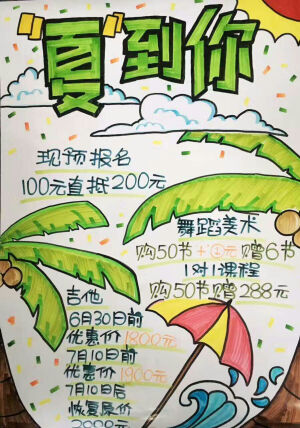 "夏"到你
现预报名
100元直抵200元
舞蹈美术
购50节+①元赠6节
1对1课程
购50节赠288元
吉他
6月30日前
优惠价1800元
7月10日前
优惠价1900元
7月10日后
恢复原价
2000元